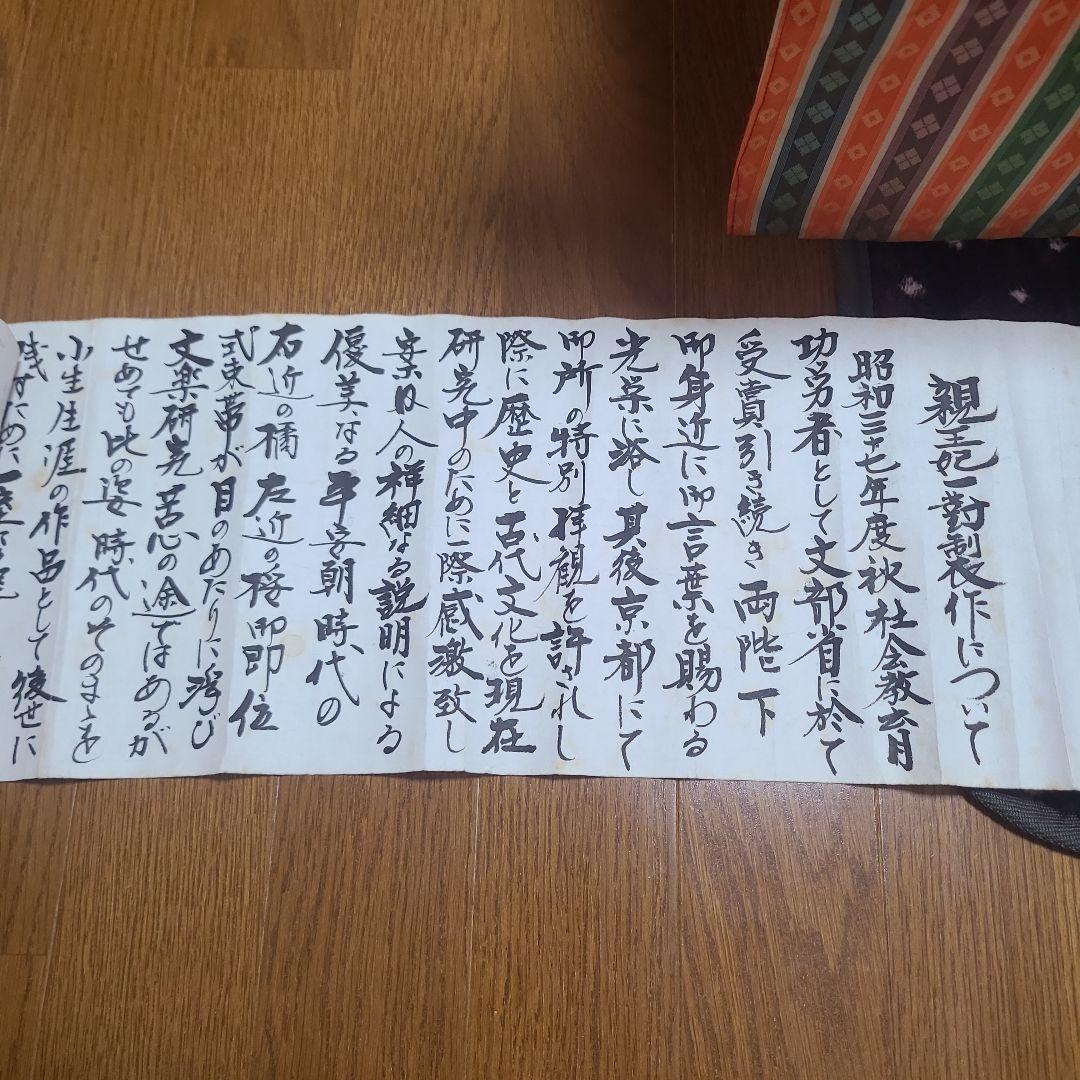 親王妃一對製作について
昭和三十七年度秋社会教育
功労者として文部省に於て
受賞引き続き両陛下
御身近に御言葉を賜わる
光栄に浴し其後京都にて
御所の特別拝観を許されし
際に歴史と古代文化を現在
研究中のために一際感激致し
案内人の祥細なる説明による
優美なる平安朝時代の
右近の橘左近の桜御即位
式束帯が目のあたりに浮び
文楽研究苦心の途ではあるが
せめても此の姿時代のそのまゝを
小生生涯の作品として後世に
残すために